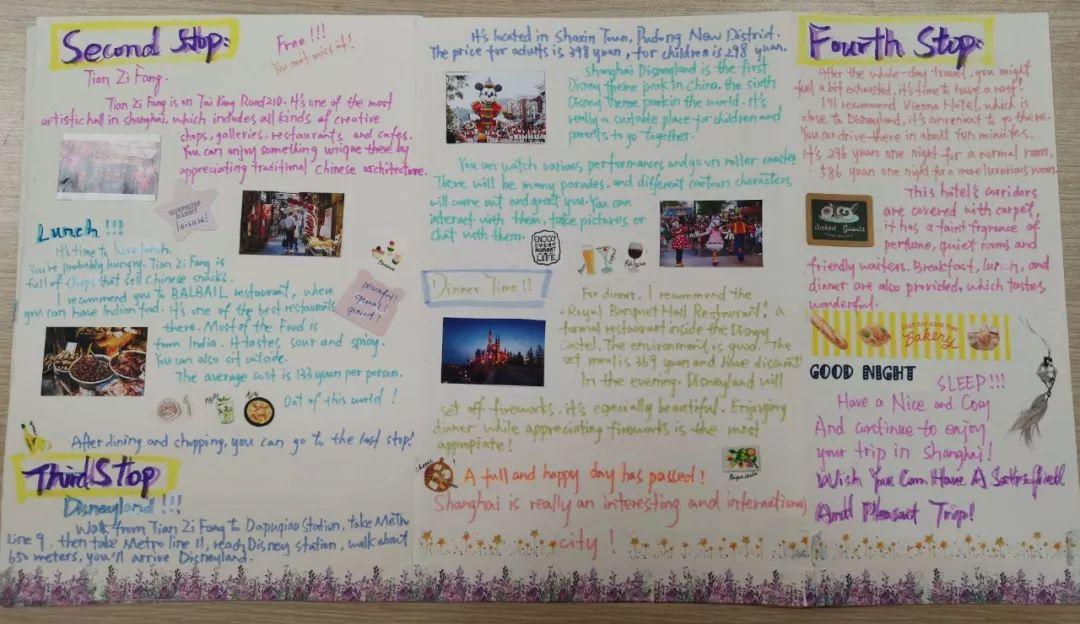 Second Stop:
Free!!!
You can't miss it!
Tian Zi Fang.
Tian Zi Fang is on Tai Kang Road 210. It's one of the most
artistic hall in shanghai, which includes all kinds of creative
shops, galleries, restaurants and cafes.
You can enjoy something unique there by
appreciating traditional Chinese architecture.
Lunch!!!
It's time to have lunch.
You're probably hungry. Tian Zi Fang is
full of shops that sell Chinese snacks.
I recommend you to BALBAIL restaurant, where
you can have Indian fud. It's one of the best restaurants
there. Most of the Food is
from India. It tastes sour and spicy.
You can also sit outside.
The average cost is 133 yuan per person.
Out of this world!
peaceful!
special!
quiet!
After dining and shopping, you can go to the last stop!
Third Stop
Disneyland!!!
Walk from Tian Zi Fang to Dapuqiao Station, take Metro
Line 9, then take Metro line 11, reach Disney station, walk about
650 meters, you'll arrive Disneyland.
It's located in Shaxin Town, Pudong New District.
The price for adults is 398 yuan, for children is 298 yuan.
Shanghai Disneyland is the first
Disney theme park in China, the sixth
Disney theme park in the world. It's
really a suitable place for children and
parents to go together.
XINHUA
You can watch various performances and go on roller coaster
There will be many parades, and different cartoon characters
will come out and greet you. You can
interact with them, take pictures or
chat with them.
ENJOY
EVERY
MOMENT
LIFE
Dinner Time!!
For dinner, I recommend the
"Royal Banquet Hall Restaurant", a
formal restaurant inside the Disney
Castel. The environment is good. The
set meal is 369 yuan and have discount!
In the evening, Disneyland will
set off fireworks, it's especially beautiful. Enjoying
dinner while appreciating fireworks is the most
appropiate!
A full and happy day has passed!
Shanghai is really an interesting and international
city!
Fourth Stop:
After the whole-day travel, you might
feel a bit exhausted, it's time to have a rest!
I'll recommend Vienna Hotel, which is
close to Disneyland, it's convenient to go there.
You can drive there in about ten minutes.
It's 296 yuan one night for a normal room,
586 yuan one night for a more luxurious room.
This hotel's corridors
are covered with carpet,
it has a faint fragrance of
perfume, quiet rooms and
friendly waiters. Breakfast, lunch, and
dinner are also provided, which tastes
wonderful.
Baked Goods
Bakery
GOOD NIGHT
SLEEP!!!
Have a Nice and Cosy
And continue to enjoy
your trip in Shanghai!
Wish You Can Have A Satisfied
And Pleasant Trip!